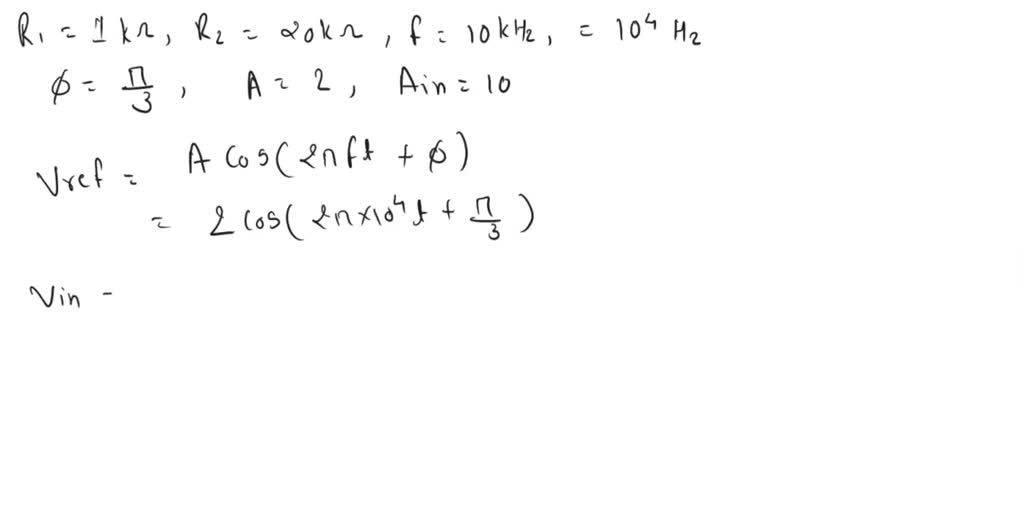 R₁ = 1 kΩ, R₂ = 20kΩ, f = 10kHz, = 10⁴ Hz
φ = π/3, A = 2, Ain = 10
Vref = A Cos(2πft + φ)
= 2 Cos(2π×10⁴t + π/3)
Vin -